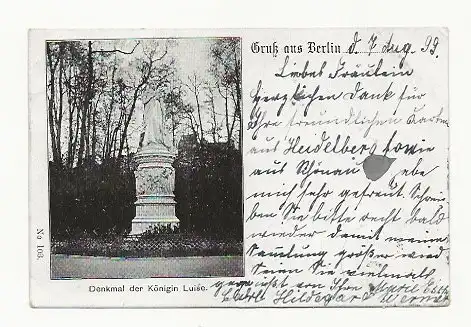 Gruß aus Berlin d. 7 Aug. 99.
Liebes Fräulein
Herzlichen Dank für
Ihre freundlichen Karten
aus Heidelberg sowie
aus Schönau habe
mich sehr gefreut. Schrei-
ben Sie bitte recht bald
wieder damit meine
Samlung größer wird
Seien Sie vielmals
gegrüßt von Ihrer Marie
Hildegard Werner
No 163.
Denkmal der Königin Luise.